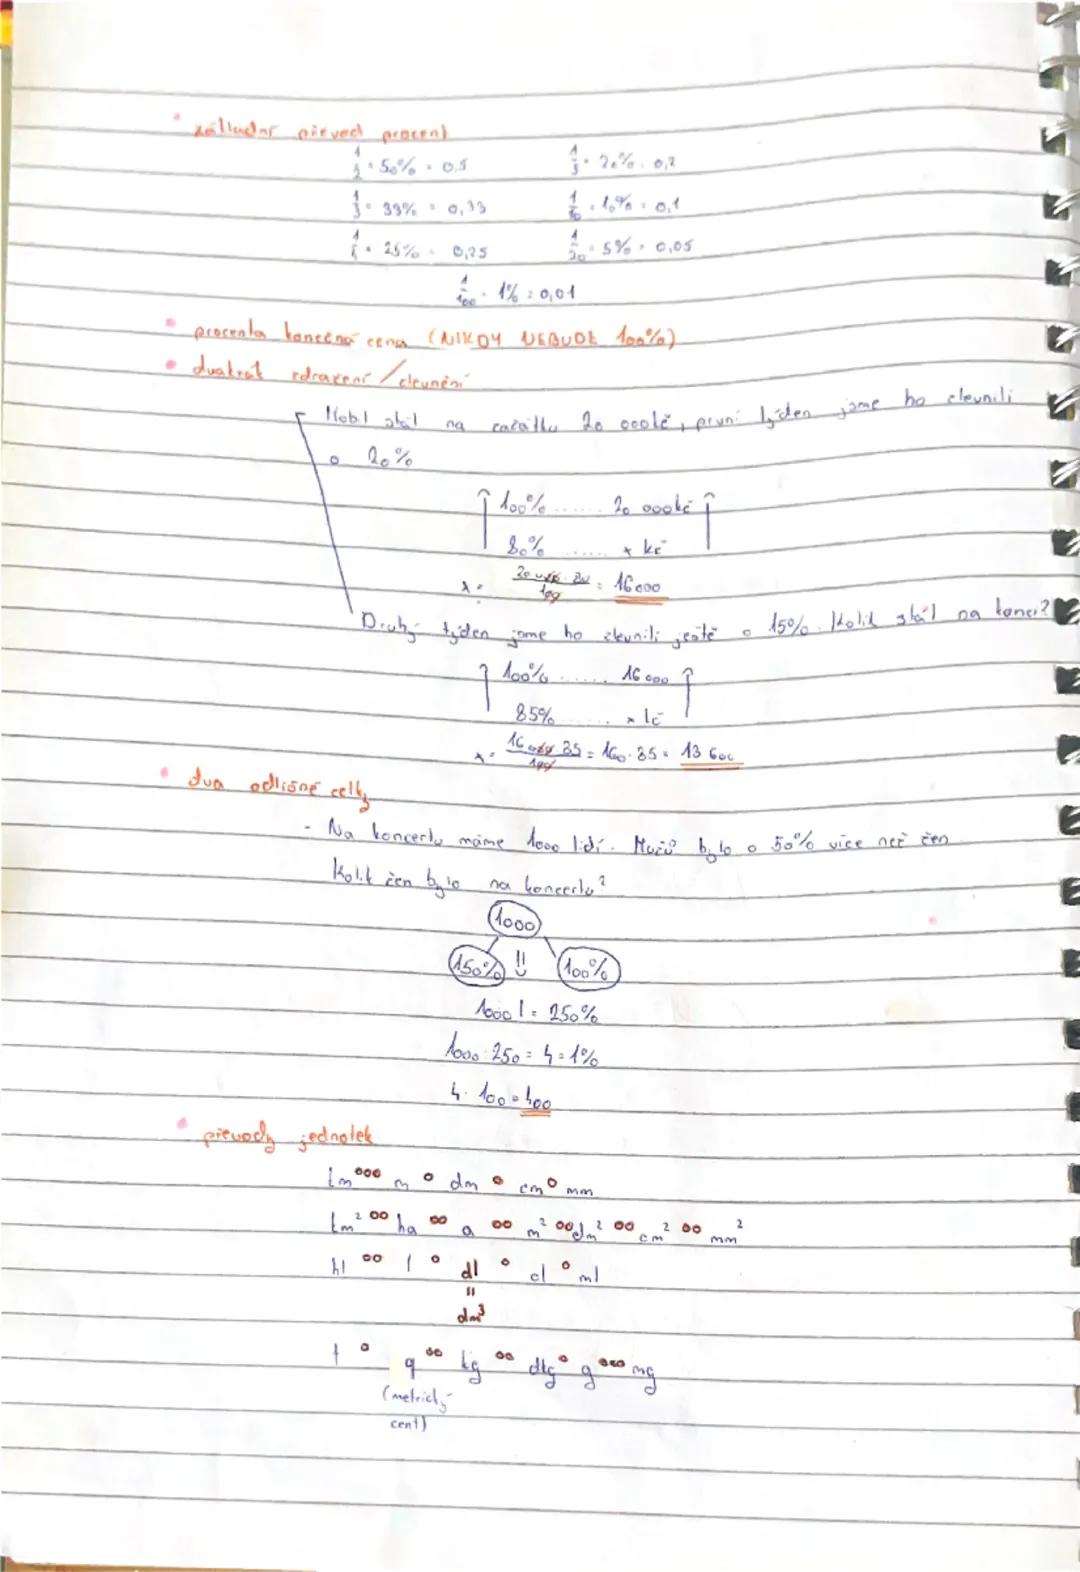 • základní převod procent
1/2 = 50% = 0,5    1/5 = 20% = 0,2
1/3 = 33% = 0,33    1/10 = 10% = 0,1
1/4 = 25% = 0,25    1/20 = 5% = 0,05
1/100 = 1% = 0,01
• procenta konečná cena (NIKDY NEBUDE 100%)
• dvakrát zdražení/zlevnění
Mobil stál na začátku 20 000kč, první týden jsme ho zlevnili
o 20%
↑ 100% ...... 20 000kč ↑
80% ...... x kč
x = 20 000 · 80 / 100 = 16 000
Druhý týden jsme ho zlevnili ještě o 15%. Kolik stál na konci?
↑ 100% ...... 16 000 ↑
85% ...... x kč
x = 16 000 · 85 / 100 = 160 · 85 = 13 600
• dva odlišné celky
- Na koncertu máme 1000 lidí. Mužů bylo o 50% více než žen
Kolik žen bylo na koncertu?
1000
150% !! 100%
1000 l = 250%
1000 : 250 = 4 = 1%
4 · 100 = 400
• převody jednotek
km ººº m º dm º cm º mm
km² ºº ha ºº a ºº m² ºº dm² ºº cm² ºº mm²
hl ºº l º dl º cl º ml
=
dm³
t º q ºº kg ºº dkg º g ººº mg
(metrický
cent)